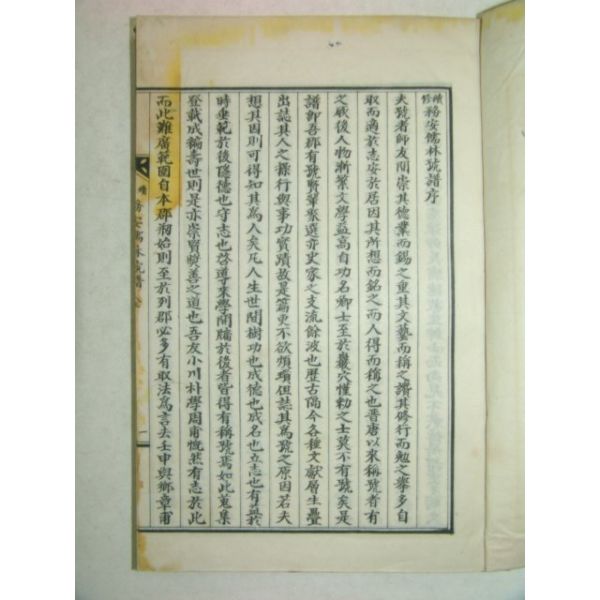 續修務安儒林號譜序
夫號者師友間崇其德業而錫之重其文藝而稱之讚其修行而勉之舉多自
取而適於志安於居因其所想而銘之而人得而稱之也晋唐以來稱號者有
之厥後人物漸繁文學益高自功名卿士至於巖穴懂勅之士莫不有號矣是
譜卽吾郡有號賢輩聚選亦史家之支流餘波也歷古隔今各種文献層生疊
出誌其人之操行與事功實蹟故是篇更不欲煩瑣但誌其爲號之原因若夫
想其因則可得知其爲人矣凡人生世間樹功也成德也成名也立志也有益於
時垂範於後隱德也守志也啓導来學開牖於後者皆得有稱號焉如此蒐集
登載成編壽世則是亦崇賢勸善之道也吾友小川朴學周甫慨然有志於此
而此雖廣範圍自本郡刱始則至於列郡必多有取法爲言去壬申與鄉章甫
續務安儒林號譜
一